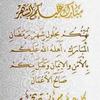 مبارك عليكم الشهر
نهنئكم بحلول شهر رمضان
المبارك أهله الله عليكم
بالأمن والإيمان وتقبل منكم
صالح الأعمال